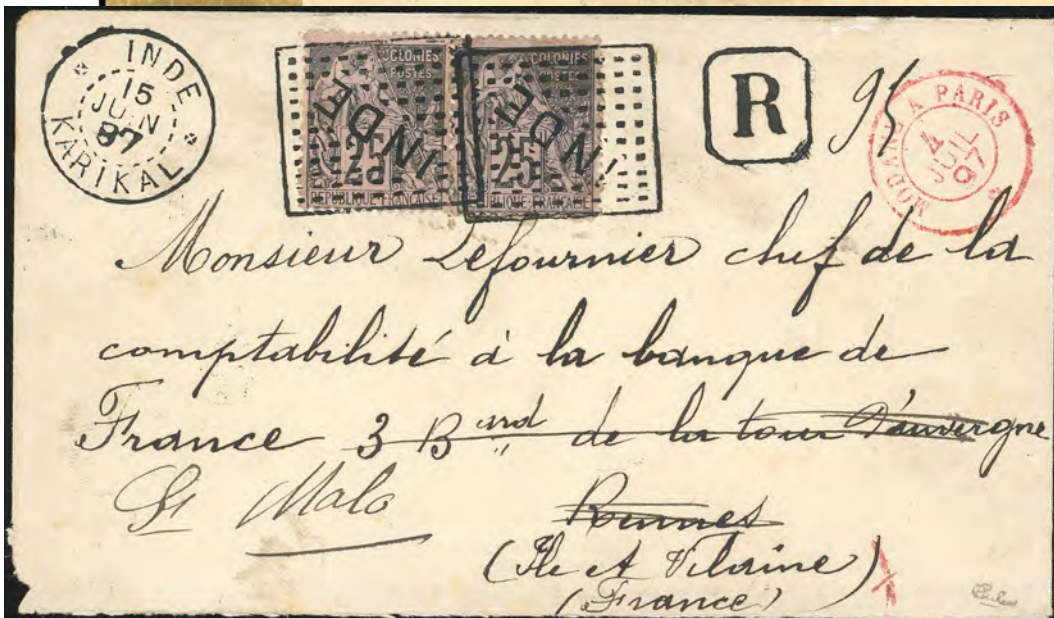 INDE
15
JUIN
97
KARIKAL
COLONIES
POSTES
25
RÉPUBLIQUE FRANÇAISE
INDE
COLONIES
POSTES
25
RÉPUBLIQUE FRANÇAISE
INDE
R
95
MODANE A PARIS
4
JUIL
97
Monsieur Lefournier chef de la
comptabilité à la banque de
France 3 Bard de la tour d'auvergne
St Malo
Rennes
(Ile et Vilaine)
(France)